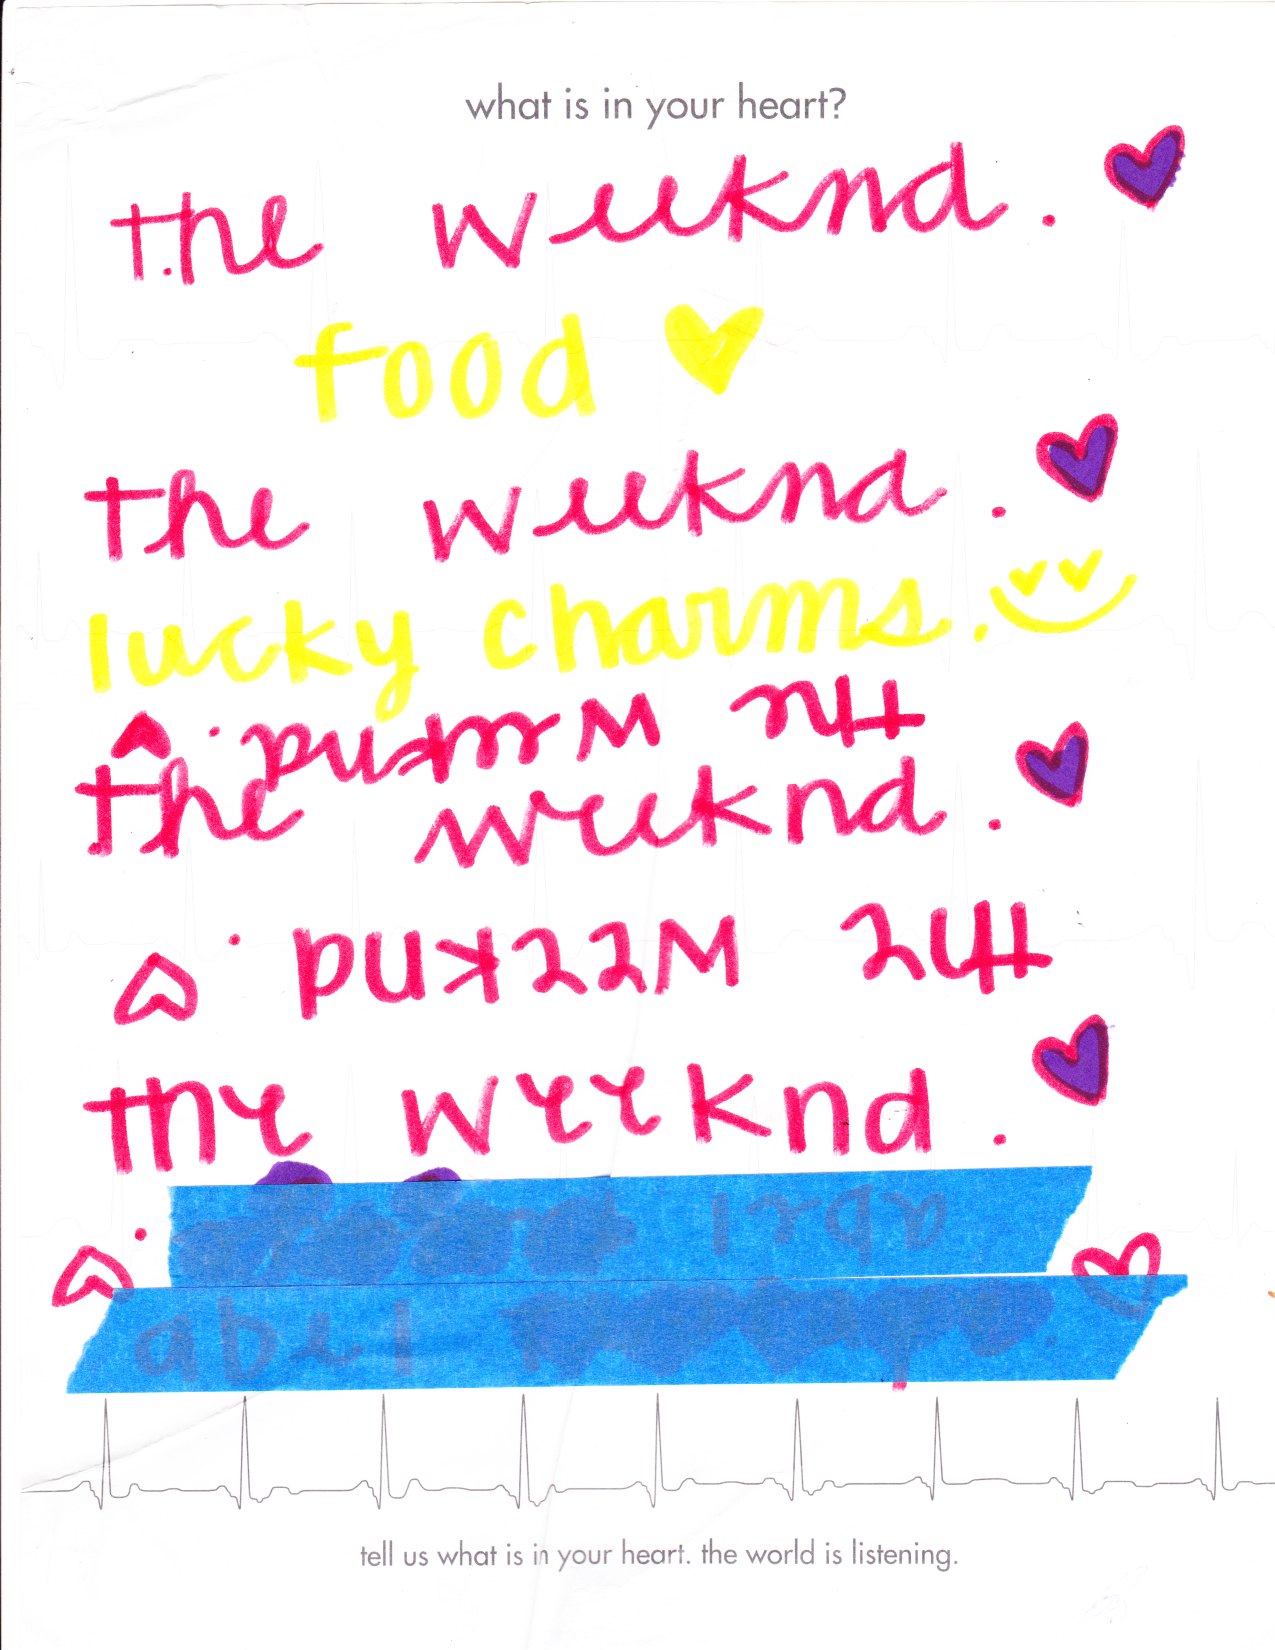 what is in your heart?
the weeknd.
food
the weeknd.
lucky charms.
the weeknd.
the weeknd.
the weeknd.
the weeknd.
abel
abel
tell us what is in your heart. the world is listening.